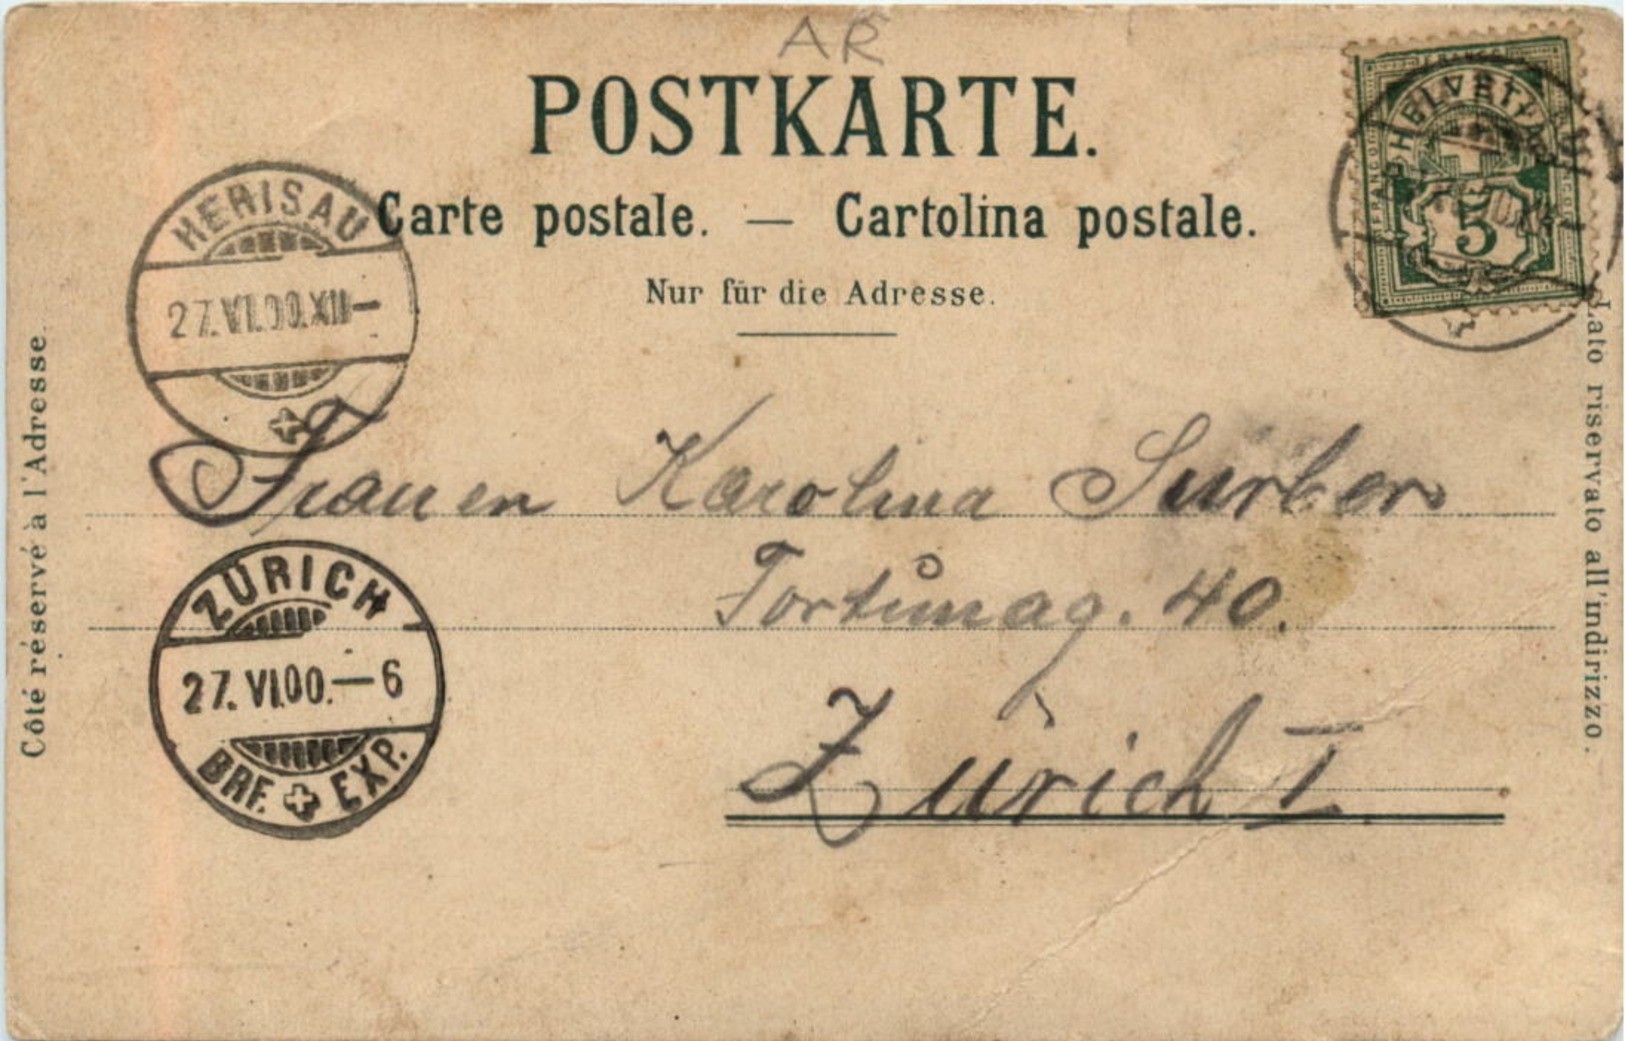 AR
POSTKARTE.
Carte postale. — Cartolina postale.
Nur für die Adresse.
HELVETIA
FRANCO
5
HERISAU
27.VI.00.XII—
Frauen Karolina Surber
Fortunag. 40.
Zürich I.
ZÜRICH
27.VI.00.—6
BRF. EXP.
Côté réservé à l'Adresse.
Lato riservato all'indirizzo.